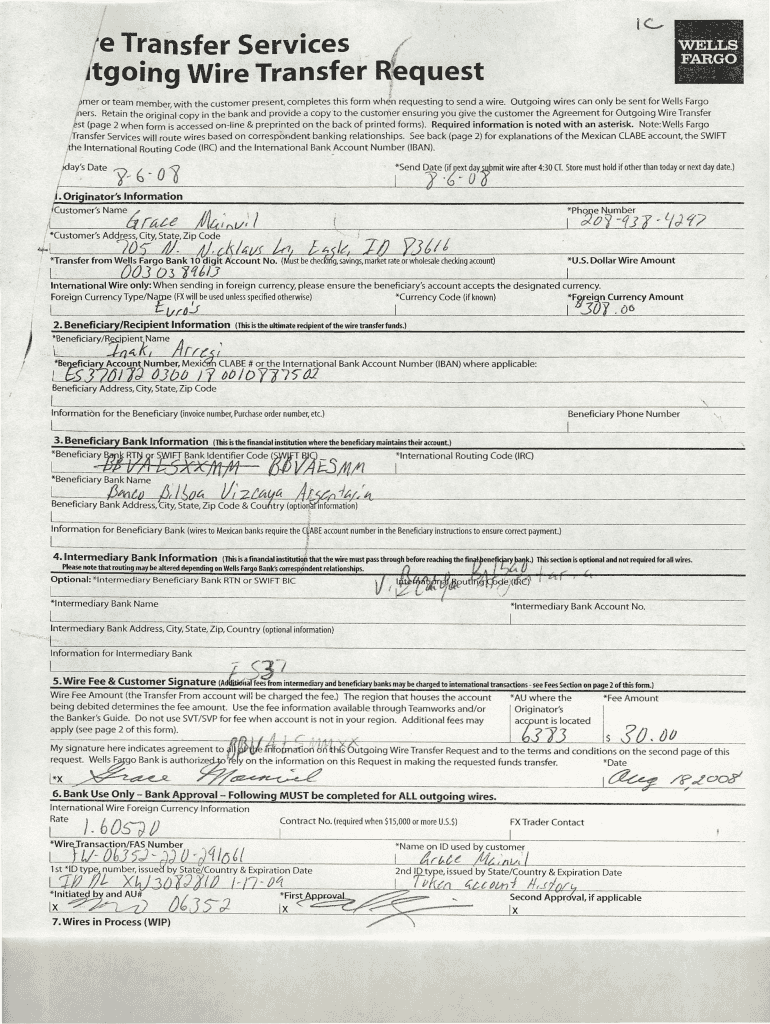 1C
WELLS
FARGO
e Transfer Services
tgoing Wire Transfer Request
omer or team member, with the customer present, completes this form when requesting to send a wire. Outgoing wires can only be sent for Wells Fargo
ners. Retain the original copy in the bank and provide a copy to the customer ensuring you give the customer the Agreement for Outgoing Wire Transfer
est (page 2 when form is accessed on-line & preprinted on the back of printed forms). Required information is noted with an asterisk. Note: Wells Fargo
Transfer Services will route wires based on correspondent banking relationships. See back (page 2) for explanations of the Mexican CLABE account, the SWIFT
the International Routing Code (IRC) and the International Bank Account Number (IBAN).
day's Date *Send Date (if next day submit wire after 4:30 CT. Store must hold if other than today or next day date.)
8-6-08 8-6-08
1. Originator's Information
*Customer's Name *Phone Number
Grace Mainvil 208-938-4297
*Customer's Address, City, State, Zip Code
705 N. Nicklaus Ln, Eagle, ID 83616
*Transfer from Wells Fargo Bank 10 digit Account No. (Must be checking, savings, market rate or wholesale checking account) *U.S. Dollar Wire Amount
0030389613
International Wire only: When sending in foreign currency, please ensure the beneficiary's account accepts the designated currency.
Foreign Currency Type/Name (FX will be used unless specified otherwise) *Currency Code (if known) *Foreign Currency Amount
Euro's $308.00
2. Beneficiary/Recipient Information (This is the ultimate recipient of the wire transfer funds.)
*Beneficiary/Recipient Name
Inaki Arregi
*Beneficiary Account Number, Mexican CLABE # or the International Bank Account Number (IBAN) where applicable:
ES370182 0360 18 0010887502
Beneficiary Address, City, State, Zip Code
Information for the Beneficiary (invoice number, Purchase order number, etc.) Beneficiary Phone Number
3. Beneficiary Bank Information (This is the financial institution where the beneficiary maintains their account.)
*Beneficiary Bank RTN or SWIFT Bank Identifier Code (SWIFT BIC) *International Routing Code (IRC)
BBVAESXXMM BBVAESMM
*Beneficiary Bank Name
Banco Bilboa Vizcaya Argentaria
Beneficiary Bank Address, City, State, Zip Code & Country (optional information)
Information for Beneficiary Bank (wires to Mexican banks require the CLABE account number in the Beneficiary instructions to ensure correct payment.)
4. Intermediary Bank Information (This is a financial institution that the wire must pass through before reaching the final beneficiary bank.) This section is optional and not required for all wires.
Please note that routing may be altered depending on Wells Fargo Bank's correspondent relationships.
Optional: *Intermediary Beneficiary Bank RTN or SWIFT BIC International Routing Code (IRC)
*Intermediary Bank Name *Intermediary Bank Account No.
Intermediary Bank Address, City, State, Zip, Country (optional information)
Information for Intermediary Bank
ES37
5. Wire Fee & Customer Signature (Additional fees from intermediary and beneficiary banks may be charged to international transactions - see Fees Section on page 2 of this form.)
Wire Fee Amount (the Transfer From account will be charged the fee.) The region that houses the account *AU where the *Fee Amount
being debited determines the fee amount. Use the fee information available through Teamworks and/or Originator's
the Banker's Guide. Do not use SVT/SVP for fee when account is not in your region. Additional fees may account is located
apply (see page 2 of this form). 6383 $ 30.00
My signature here indicates agreement to all of the information on this Outgoing Wire Transfer Request and to the terms and conditions on the second page of this
request. Wells Fargo Bank is authorized to rely on the information on this Request in making the requested funds transfer. *Date
*X Grace Mainvil Aug 18, 2008
6. Bank Use Only – Bank Approval – Following MUST be completed for ALL outgoing wires.
International Wire Foreign Currency Information
Rate Contract No. (required when $15,000 or more U.S.$) FX Trader Contact
1.60520
*Wire Transaction/FAS Number *Name on ID used by customer
FW-06352-220-291061 Grace Mainvil
1st *ID type, number, issued by State/Country & Expiration Date 2nd ID type, issued by State/Country & Expiration Date
ID DL XW308281D 1-17-09 Token account History
*Initiated by and AU# *First Approval Second Approval, if applicable
X 06352 X X
7. Wires in Process (WIP)